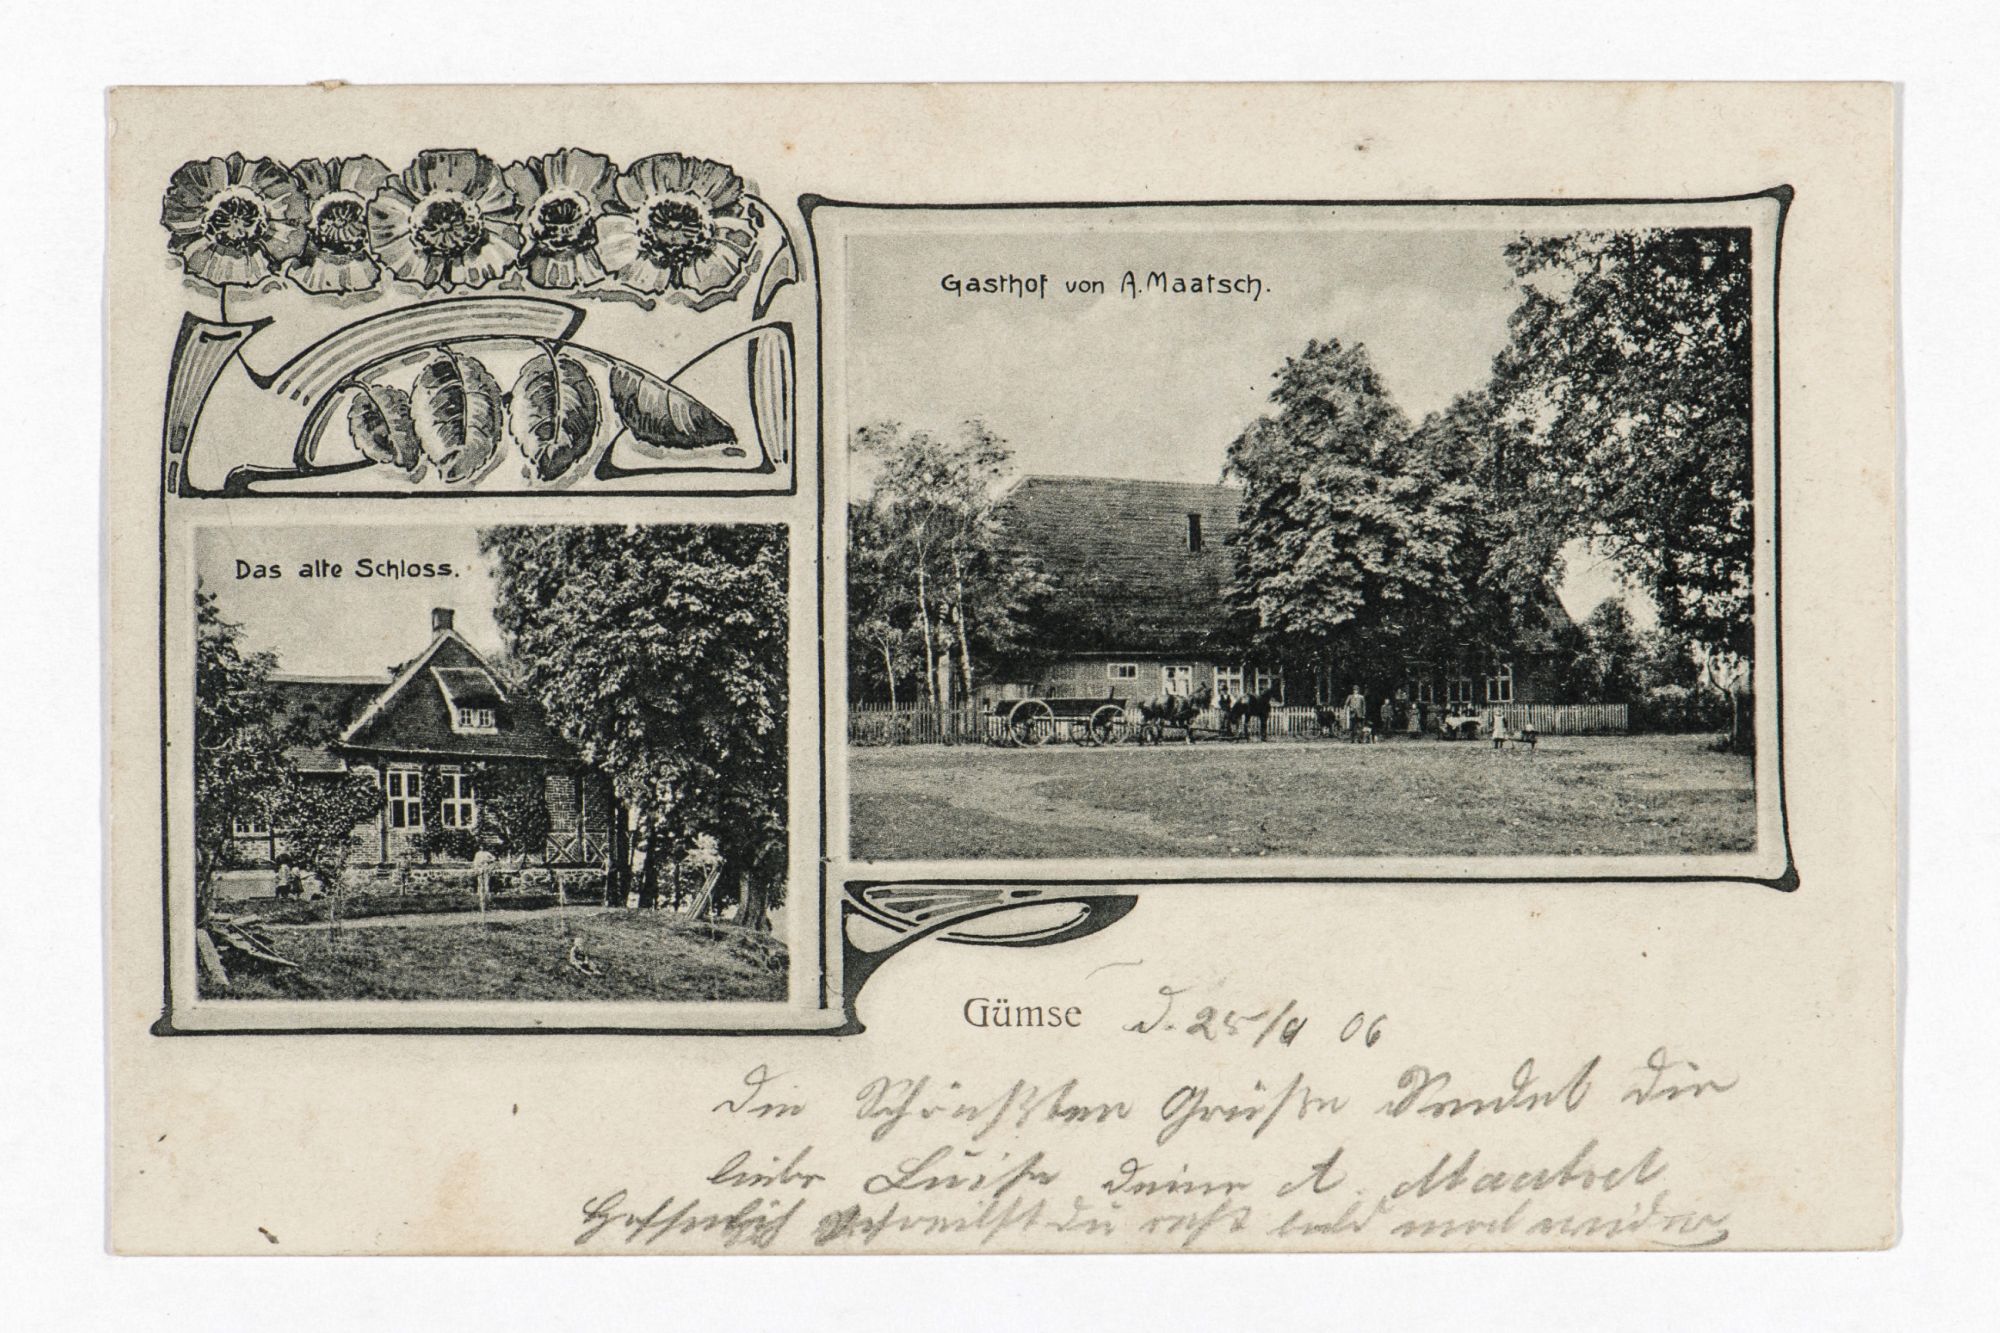 Gasthof von A. Maatsch.
Das alte Schloss.
Gümse d. 25/9 06
Die Schönsten Grüße Sendet dir
liebe Luise deine A.
Hoffendlich schreibst du recht bald mal wieder